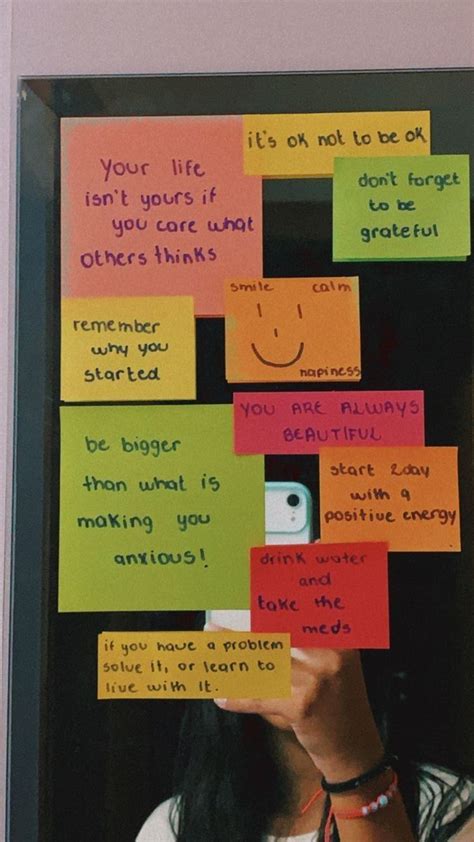 it's ok not to be ok
Your life
isn't yours if
you care what
others thinks
don't forget
to be
grateful
smile calm
hapiness
remember
why you
started
YOU ARE ALWAYS
BEAUTIFUL
be bigger
than what is
making you
anxious!
start 2day
with a
positive energy
drink water
and
take the
meds
if you have a problem
solve it, or learn to
live with it.